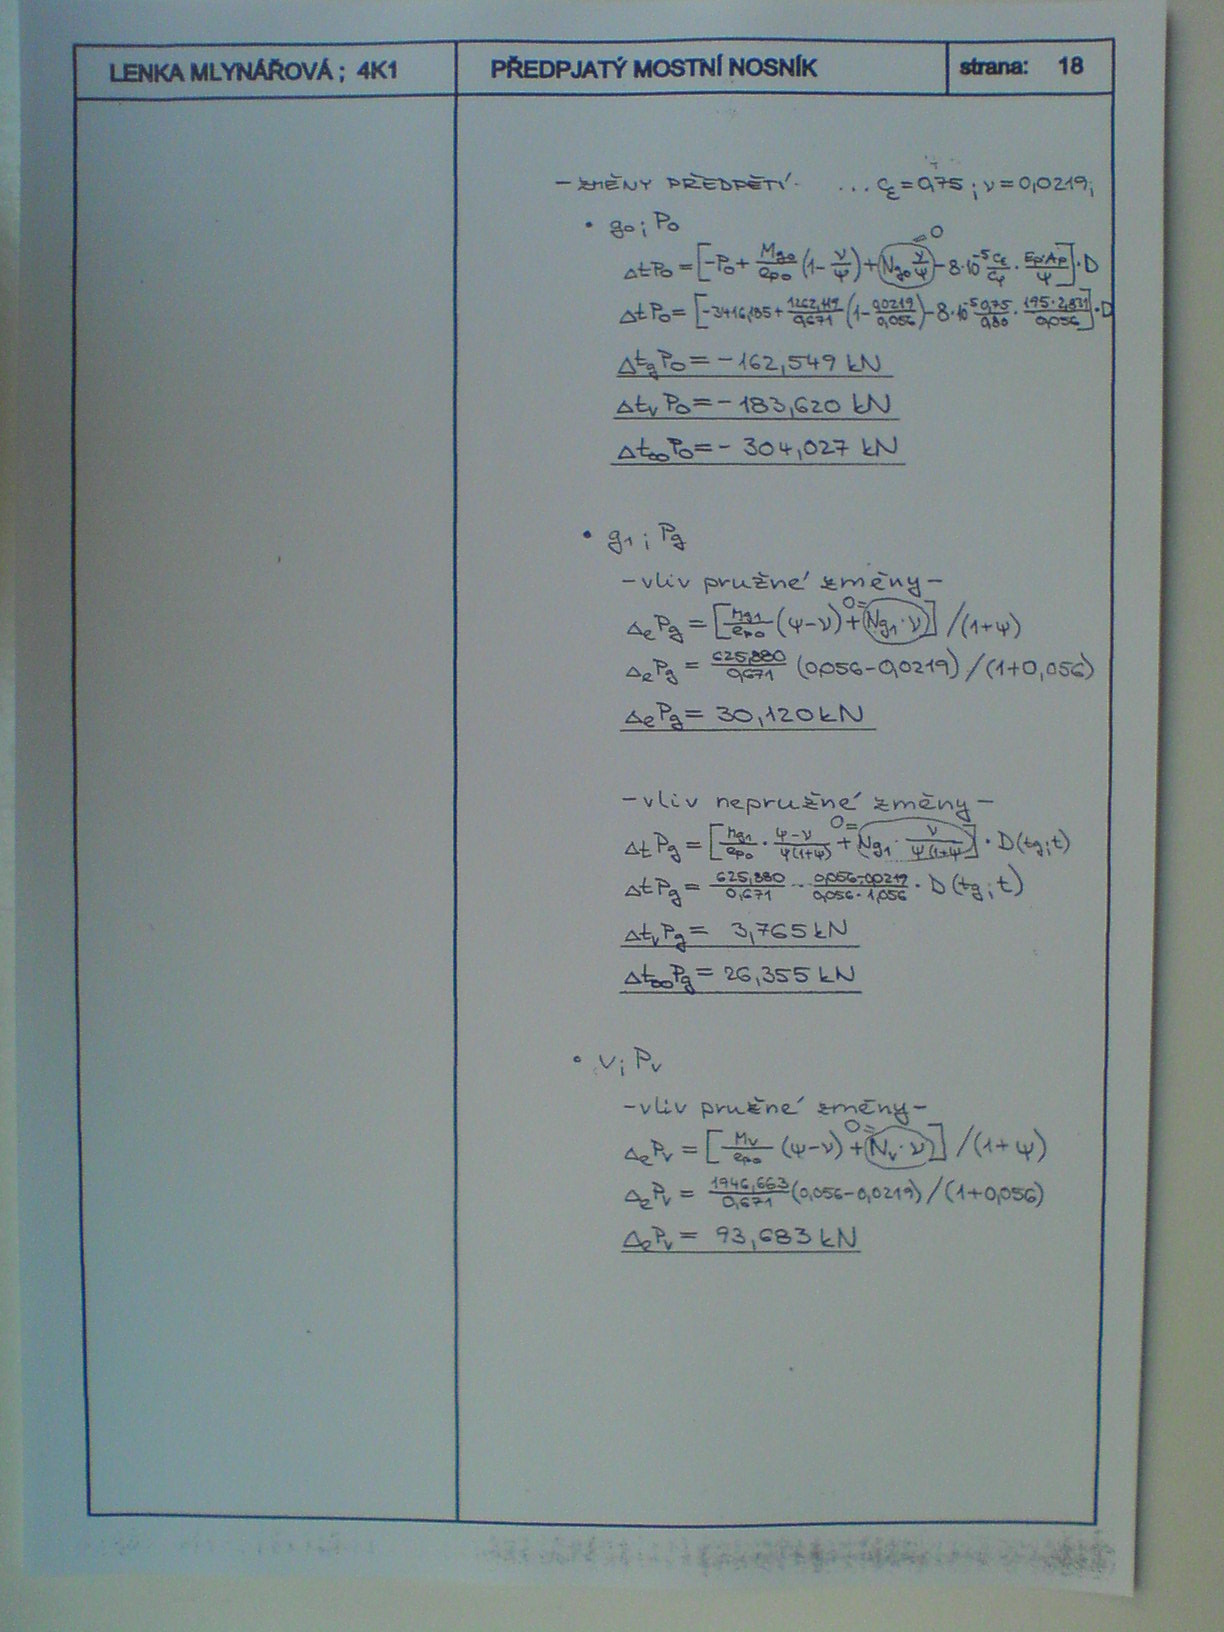 LENKA MLYNÁŘOVÁ ; 4K1
PŘEDPJATÝ MOSTNÍ NOSNÍK
strana: 18
- ZMĚNY PŘEDPĚTÍ ... cε = 0,75 ; ν = 0,0219;
• g0 ; P0
ΔtP0 = [-P0 + Mg0/ep0 (1 - ν/ψ) + Ng0 ν/ψ - 8·10^-5 cε/cφ · Ep·Ap/ψ] · D
= 0
ΔtP0 = [-3416,195 + 1262,119/0,671 (1 - 0,0219/0,056) - 8·10^-5 0,75/0,80 · 195·2,831/0,056] · D
ΔtgP0 = - 162,549 kN
ΔtvP0 = - 183,620 kN
Δt∞P0 = - 304,027 kN
• g1 ; Pg
- vliv pružné změny -
ΔePg = [Mg1/ep0 (ψ - ν) + Ng1 · ν] / (1+ψ)
0 =
ΔePg = 625,880/0,671 (0,056 - 0,0219) / (1+0,056)
ΔePg = 30,120 kN
- vliv nepružné změny -
ΔtPg = [Mg1/ep0 · ψ-ν/ψ(1+ψ) + Ng1 · ν/ψ(1+ψ)] · D(tg;t)
0 =
ΔtPg = 625,880/0,671 · 0,056-0,0219/0,056·1,056 · D(tg;t)
ΔtvPg = 3,765 kN
Δt∞Pg = 26,355 kN
• v ; Pv
- vliv pružné změny -
ΔePv = [Mv/ep0 (ψ - ν) + Nv · ν] / (1+ψ)
0 =
ΔePv = 1946,663/0,671 (0,056 - 0,0219) / (1+0,056)
ΔePv = 93,683 kN